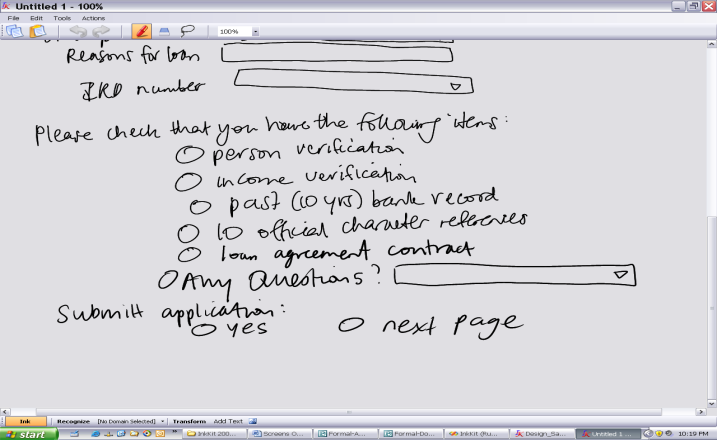 Untitled 1 - 100%
File Edit Tools Actions
100%
Reasons for loan
IRD number
Please check that you have the following items:
person verification
income verification
past (10 yrs) bank record
10 official character references
loan agreement contract
Any Questions?
Submitt application:
yes next page
Ink Recognize [No Domain Selected] Transform Add Text
start InkKit 200... Screens O... Formal-A... Formal-Do... InkKit (Ru... Design_Sa... Untitled 1 ... 10:19 PM